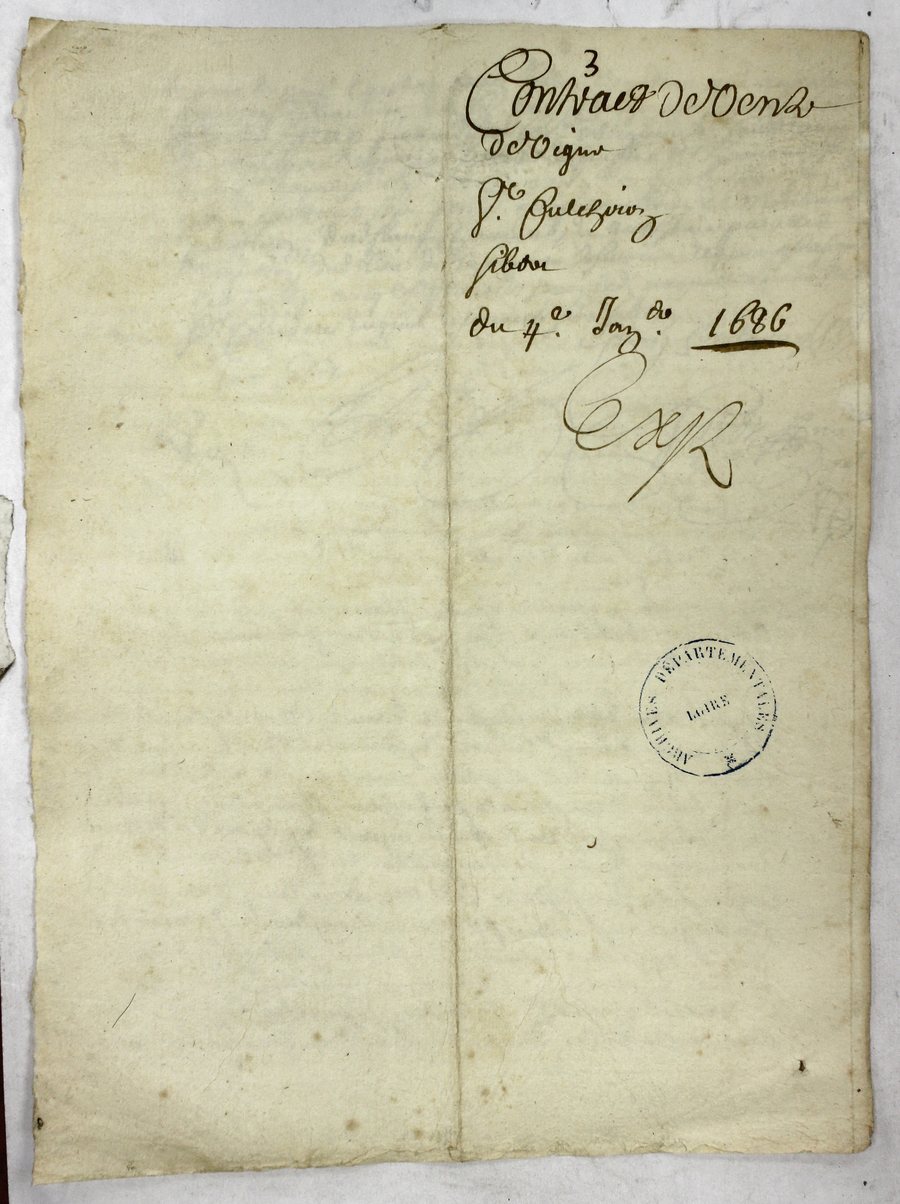 3
Contract de Vente
de Vigne
Sr.
du 4e. Janer. 1686
Exp
ARCHIVES DÉPARTEMENTALES
LOIRE